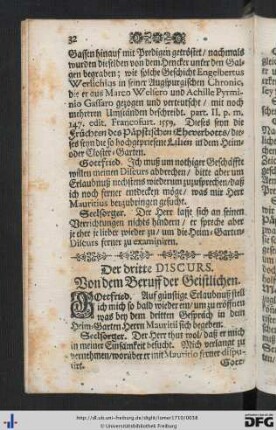 32
Gassen hinauf mit Predigen getröstet / nachmals
wurden dieselben von dem Hencker unter den Gal-
gen begraben; wie solche Geschicht Engelbertus
Werlichius in seiner Augspurgischen Chronic,
die er aus Marco Welsero und Achille Pyrmi-
nio Gassaro gezogen und verteutscht / mit noch
mehrern Umständen beschreibt. part. II. p. m.
147. edit. Francofurt. 1595. Dieses seyn die
Früchten des Päpstischen Eheverbotts / die-
ses seyn die so hochgepriesene Lilien in dem Heim-
oder Closter-Garten.
Gottfried. Ich muß um nothiger Geschäffte
willen meinen Discurs abbrechen / bitte aber um
Erlaubnuß nechstens wiederum zuzusprechen / daß
ich noch ferner entdecken möge / was mir Herr
Mauritius beyzubringen gesucht.
Seelsorger. Der Herr lasse sich an seinen
Verrichtungen nichts hindern / er spreche aber
je eher je lieber wieder zu / um die Heim-Garten-
Discurs ferner zu examiniren.
Der dritte DISCURS.
Von dem Beruff der Geistlichen.
GOttfried. Auf günstige Erlaubnuß stell
ich mich so bald wieder ein / um zu eröffnen
was bey dem dritten Gespräch in dem
Heim-Garten Herrn Mauritii sich begeben.
Seelsorger. Der Herr thut wol / daß er mich
in meiner Einsamkeit besucht. Mich verlangt zu
vernehmen / worüber er mit Mauritio ferner dispu-
tirt.
Gott-
http://dl.ub.uni-freiburg.de/diglit/lamer1710/0038
© Universitätsbibliothek Freiburg